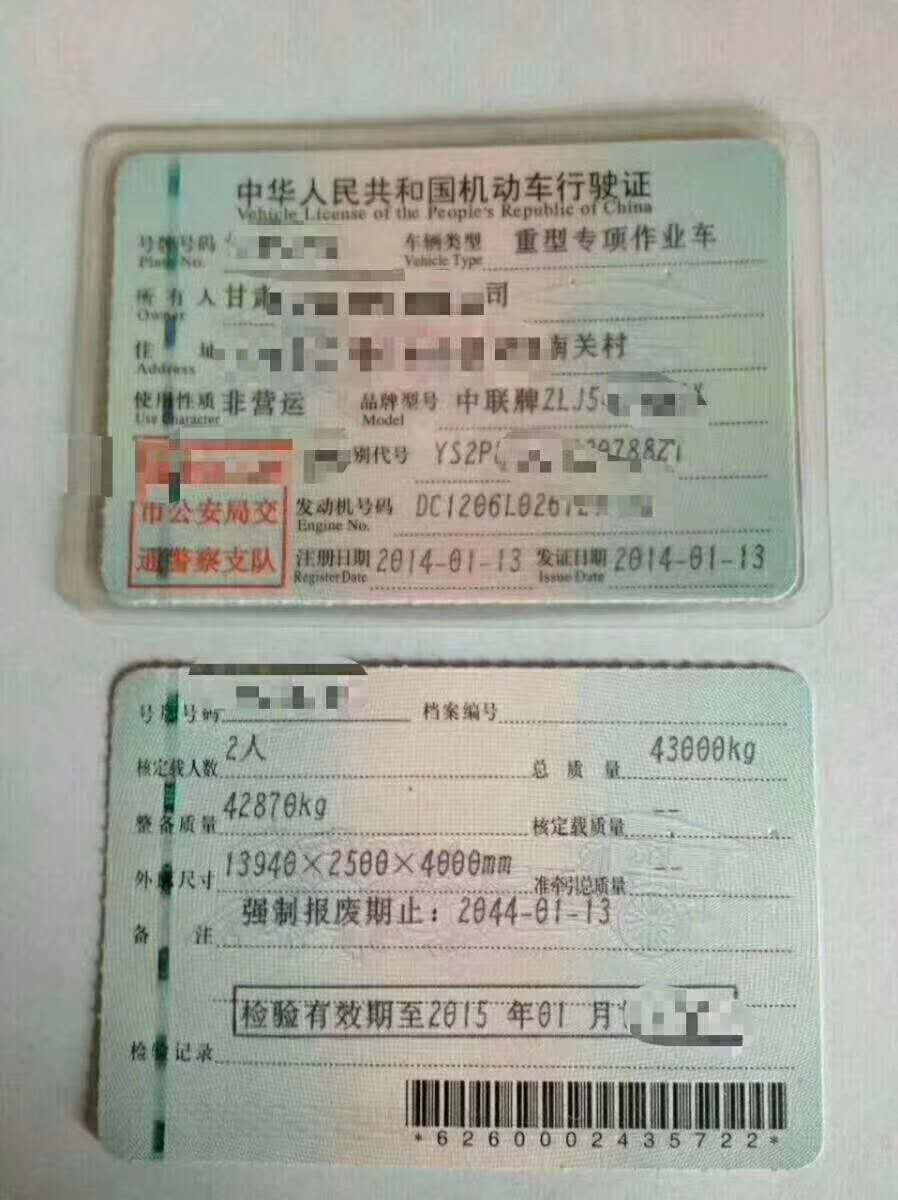 中华人民共和国机动车行驶证
Vehicle License of the People's Republic of China
号牌号码 车辆类型 重型专项作业车
Plate No. Vehicle Type
所有人 甘肃 司
Owner
住址 南关村
Address
使用性质 非营运 品牌型号 中联牌ZLJ5
Use Character Model
别代号 YS2P
市公安局交 发动机号码 DC1206L026
Engine No.
通警察支队 注册日期 2014-01-13 发证日期 2014-01-13
Register Date Issue Date
号牌号码 档案编号
核定载人数 2人 总质量 43000kg
整备质量 42870kg 核定载质量 --
外廓尺寸 13940×2500×4000mm 准牵引总质量 --
备注 强制报废期止：2044-01-13
检验有效期至2015 年01 月
检验记录
*6260002435722*